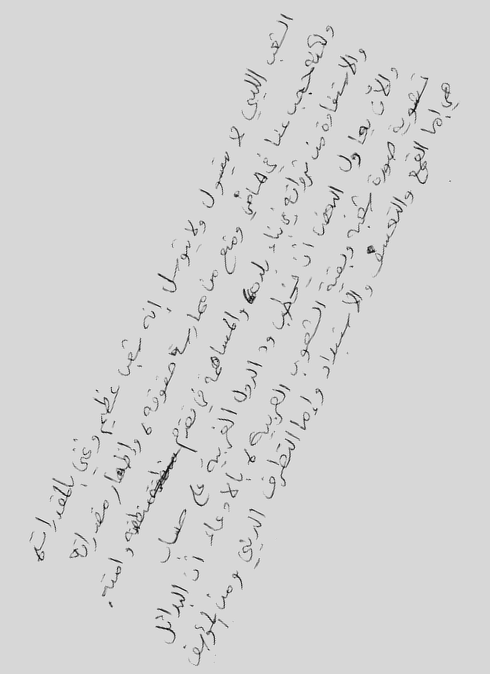 الشعب الليبي لا يتسول ولا يتوسل إنه شعب عظيم وغني بالمقدراته
ولكنه حجب عنا في الماضي ومنع من ممارسة حقوقه، وإظهار مقدراته
والاستفادة من ثرواته في بناء بلده والمساهمة في تقدم منطقته وأمته.
والآن يحاول البعض أن يخطب ود الدول الغربية على حساب
تشويه صورة شعبه وبقية الشعوب العربية، بالادعاء أن البدائل
هي إما القمع والتعسف والاستبداد وإما التطرف الديني ومن المؤسف